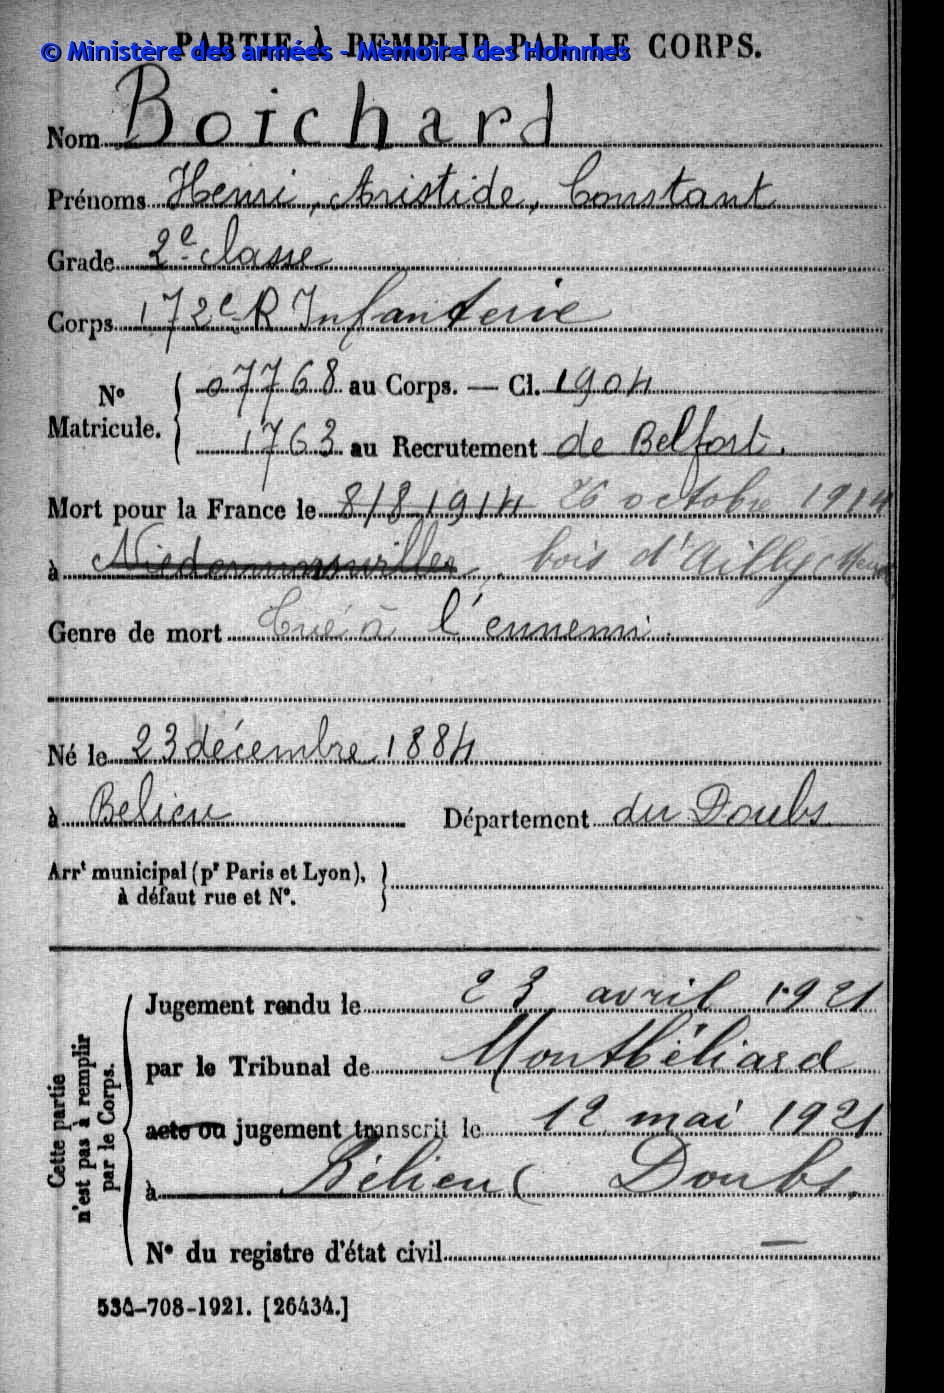 PARTIE À REMPLIR PAR LE CORPS.
© Ministère des armées - Mémoire des Hommes
Nom Boichard
Prénoms Henri, Aristide, Constant
Grade 2e classe
Corps 172e R Infanterie
No Matricule. { 07768 au Corps. — Cl. 1904
1763 au Recrutement de Belfort.
Mort pour la France le 8/8 1914 26 octobre 1914
à bois d'Ailly (Meuse
Genre de mort Tué à l'ennemi.
Né le 23 décembre 1884
à Belieu Département du Doubs
Arrt municipal (pr Paris et Lyon), }
à défaut rue et No.
Cette partie
n'est pas à remplir
par le Corps.
Jugement rendu le 23 avril 1921
par le Tribunal de Montbéliard
acte ou jugement transcrit le 12 mai 1921
à Bélieu (Doubs.
No du registre d'état civil —
534-708-1921. [26434.]